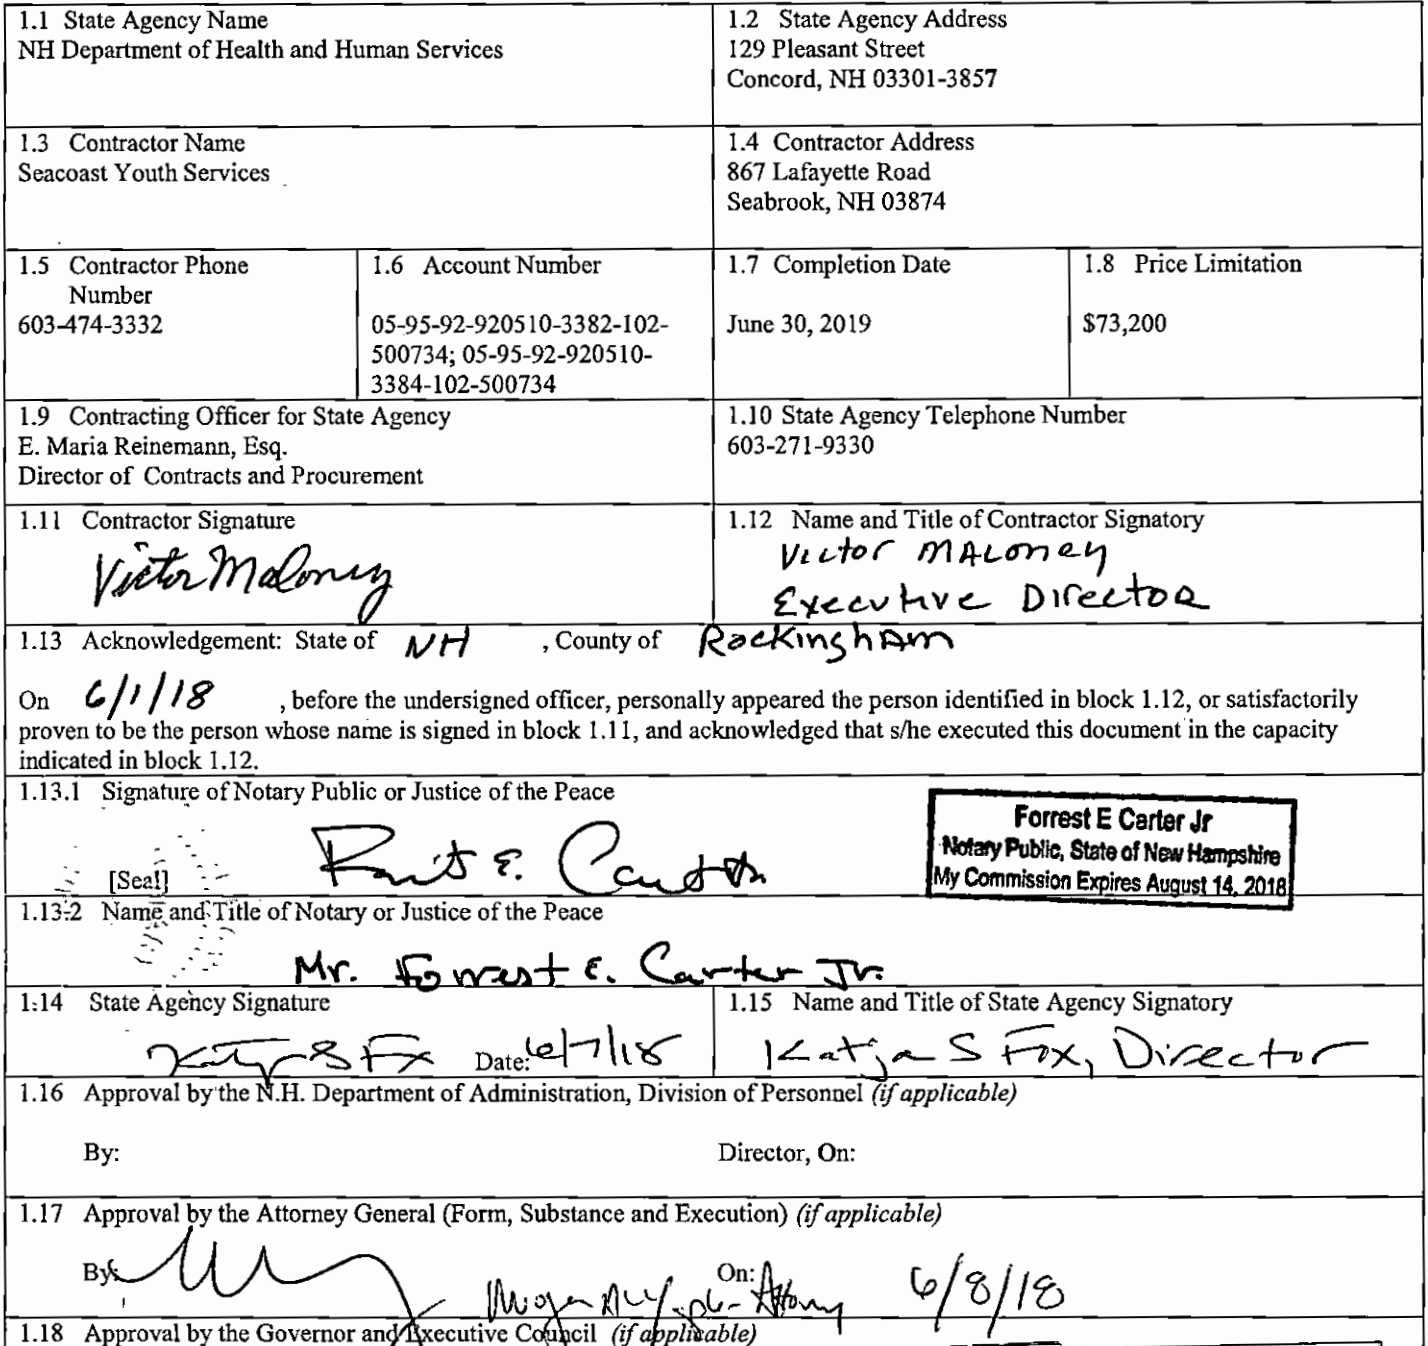 1.1 State Agency Name
NH Department of Health and Human Services
1.2 State Agency Address
129 Pleasant Street
Concord, NH 03301-3857
1.3 Contractor Name
Seacoast Youth Services
1.4 Contractor Address
867 Lafayette Road
Seabrook, NH 03874
1.5 Contractor Phone
Number
603-474-3332
1.6 Account Number
05-95-92-920510-3382-102-
500734; 05-95-92-920510-
3384-102-500734
1.7 Completion Date
June 30, 2019
1.8 Price Limitation
$73,200
1.9 Contracting Officer for State Agency
E. Maria Reinemann, Esq.
Director of Contracts and Procurement
1.10 State Agency Telephone Number
603-271-9330
1.11 Contractor Signature
Victor Maloney
1.12 Name and Title of Contractor Signatory
Victor MALoney
Executive Director
1.13 Acknowledgement: State of NH , County of RockinghAm
On 6/1/18 , before the undersigned officer, personally appeared the person identified in block 1.12, or satisfactorily
proven to be the person whose name is signed in block 1.11, and acknowledged that s/he executed this document in the capacity
indicated in block 1.12.
1.13.1 Signature of Notary Public or Justice of the Peace
[Seal]
E. Carter
Forrest E Carter Jr
Notary Public, State of New Hampshire
My Commission Expires August 14, 2018
1.13.2 Name and Title of Notary or Justice of the Peace
Mr. Forrest E. Carter Jr.
1.14 State Agency Signature
Date: 6/7/18
1.15 Name and Title of State Agency Signatory
Katja S Fox, Director
1.16 Approval by the N.H. Department of Administration, Division of Personnel (if applicable)
By: Director, On:
1.17 Approval by the Attorney General (Form, Substance and Execution) (if applicable)
By: On: 6/8/18
1.18 Approval by the Governor and Executive Council (if applicable)